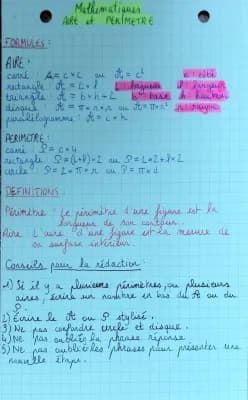 Mathématiques
AIRE et PÉRIMÈTRE
FORMULES :
AIRE :
carré A = c × c ou A = c² c : côté
rectangle : A = L × l L : longueur l : largeur
triangle : A = b × h ÷ 2 b : base h : hauteur
disque : A = π × r × r ou A = π × r² r : rayon
parallélogramme : A = c × h
PERIMETRE :
carré P = c × 4
rectangle P = (L+l) × 2 ou P = L×2 + l×2
cercle : P = 2 × π × r ou P = π × d
DEFINITIONS :
Périmètre : Le périmètre d'une figure est la
longueur de son contour.
Aire : L'aire d'une figure est la mesure de
sa surface intérieur.
Conseils pour la rédaction :
1) Si il y a plusieurs périmètres, ou plusieurs
aires, écrire un nombre en bas du A ou du
P.
2) Ecrire le A ou P stylisé.
3) Ne pas confondre cercle et disque.
4) Ne pas oublier la phrase réponse.
5) Ne pas oublier les phrases pour présenter une
nouvelle étape.